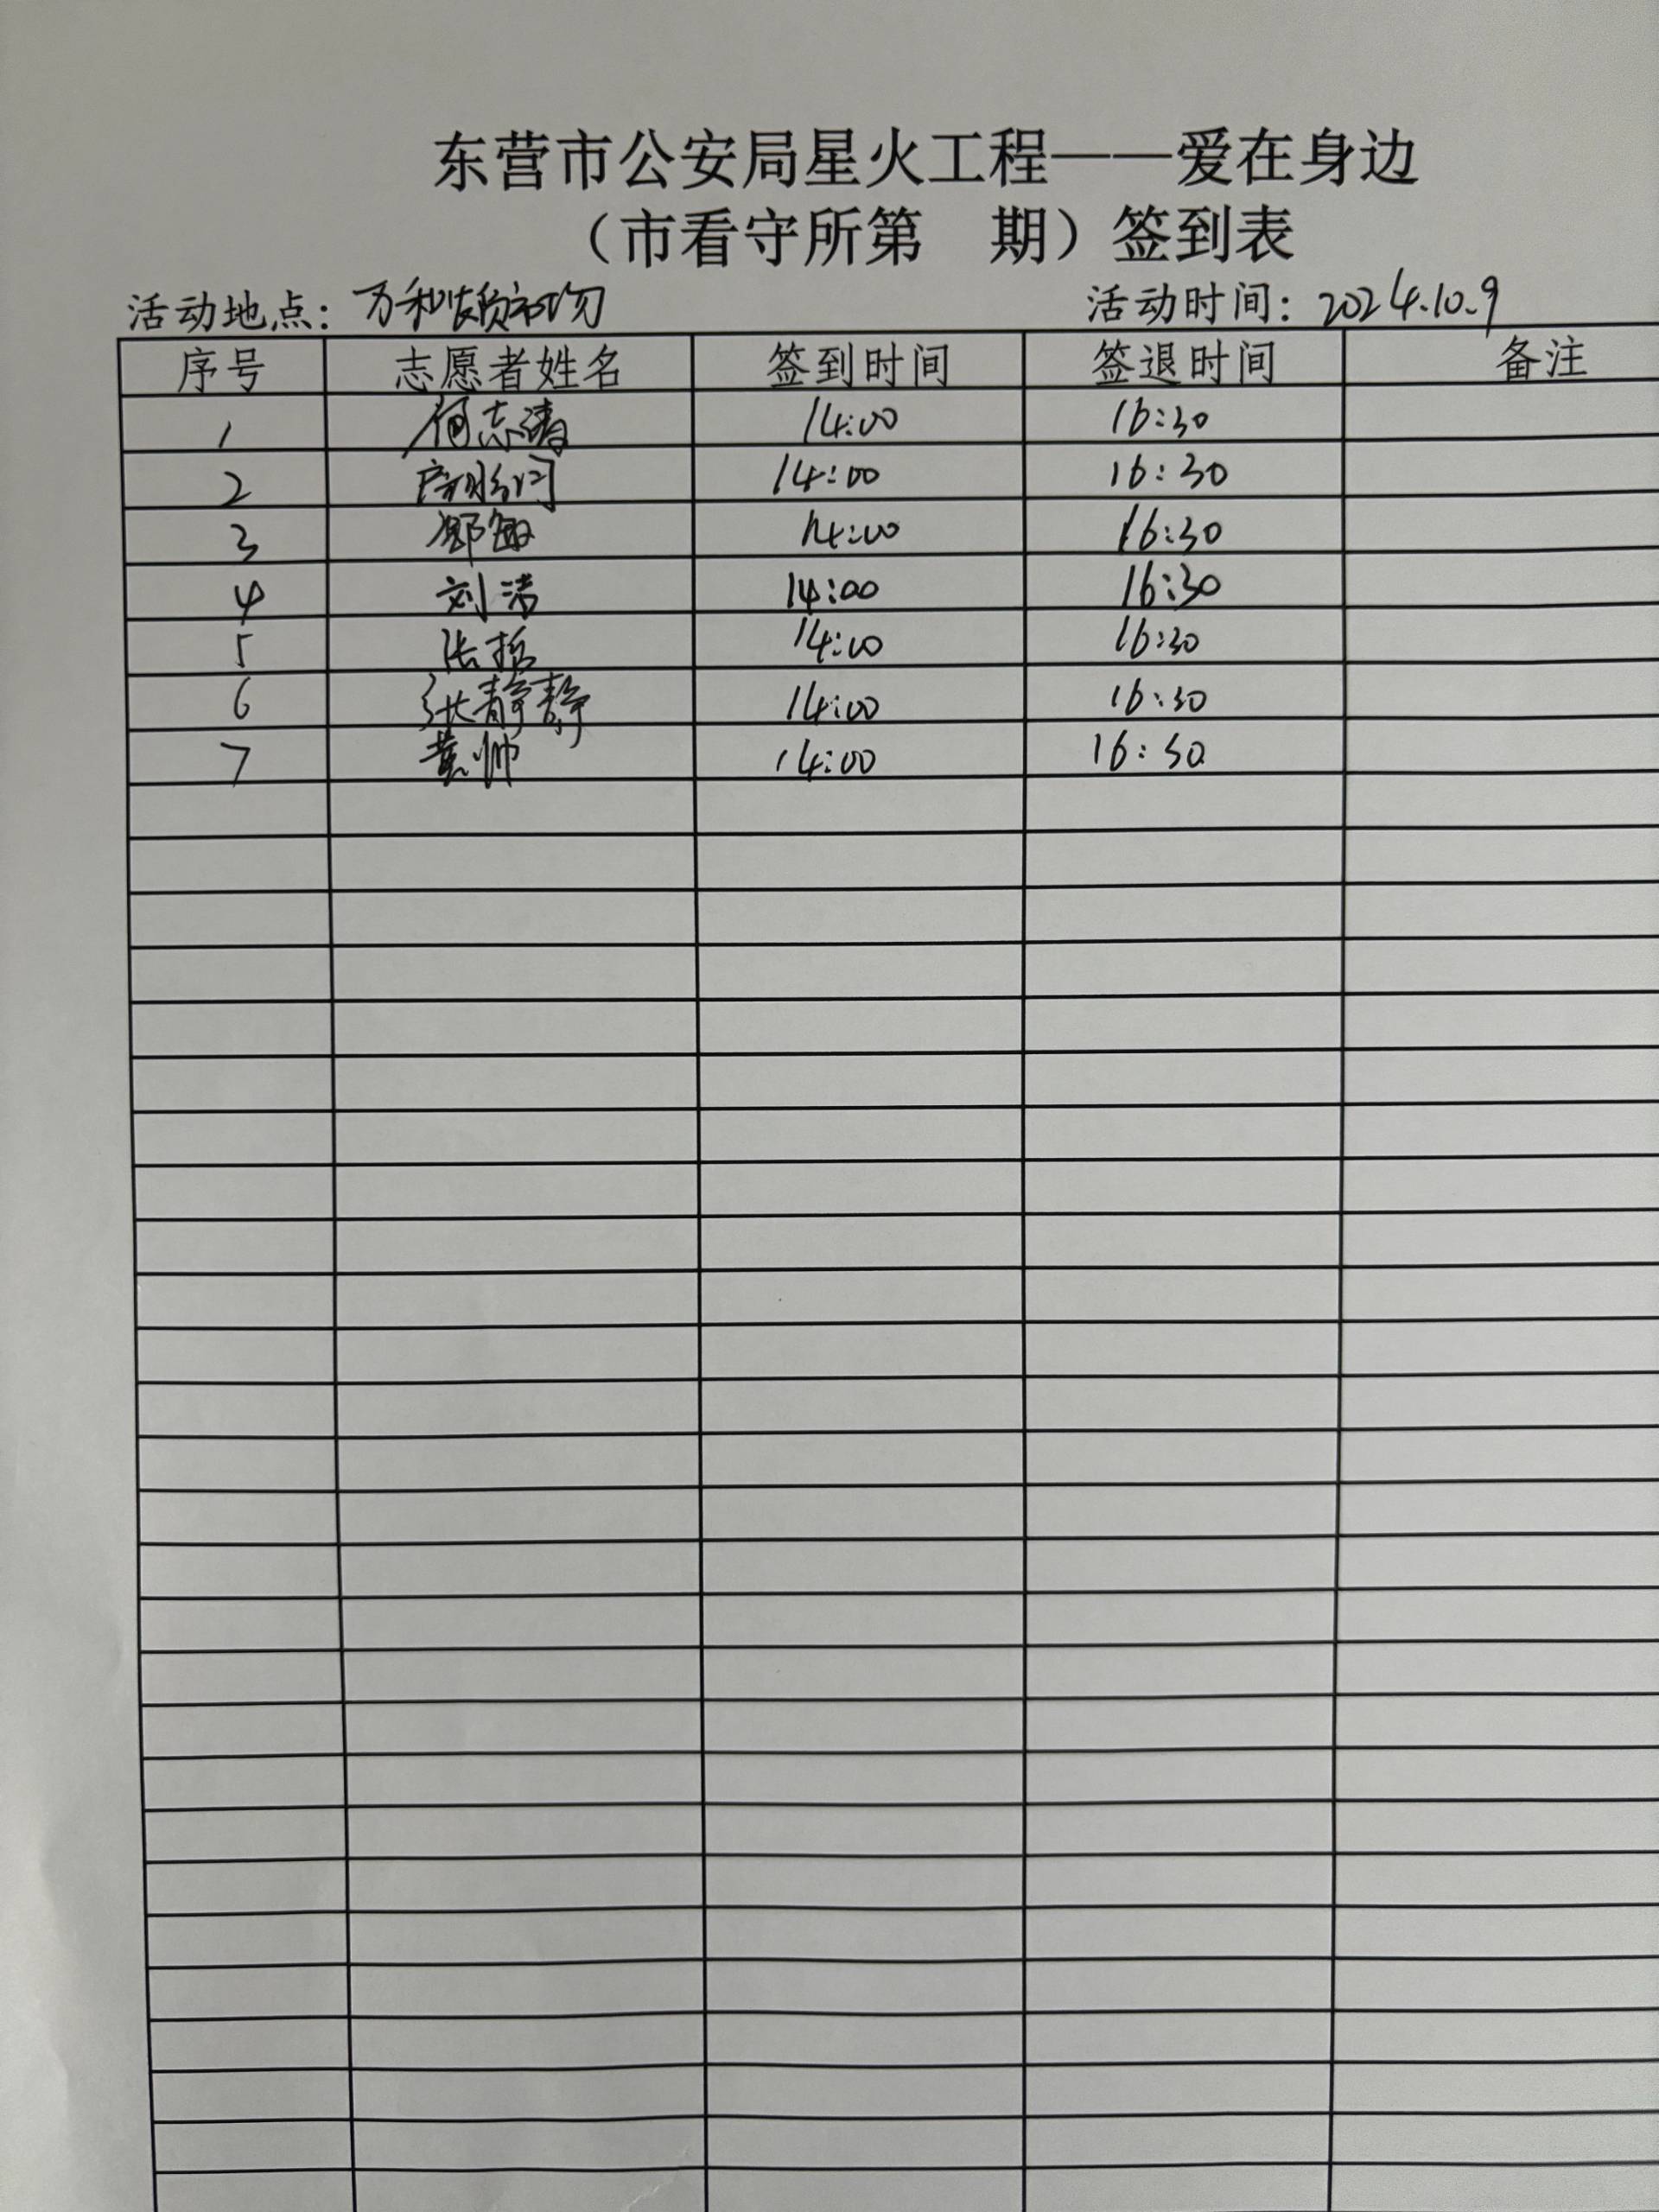 东营市公安局星火工程——爱在身边
（市看守所第 期）签到表
活动地点：万和农贸市场 活动时间：2024.10.9
序号 志愿者姓名 签到时间 签退时间 备注
1 何志涛 14:00 16:30
2 14:00 16:30
3 邹敏 14:00 16:30
4 刘洁 14:00 16:30
5 张哲 14:00 16:30
6 张静静 14:00 16:30
7 黄帅 14:00 16:30